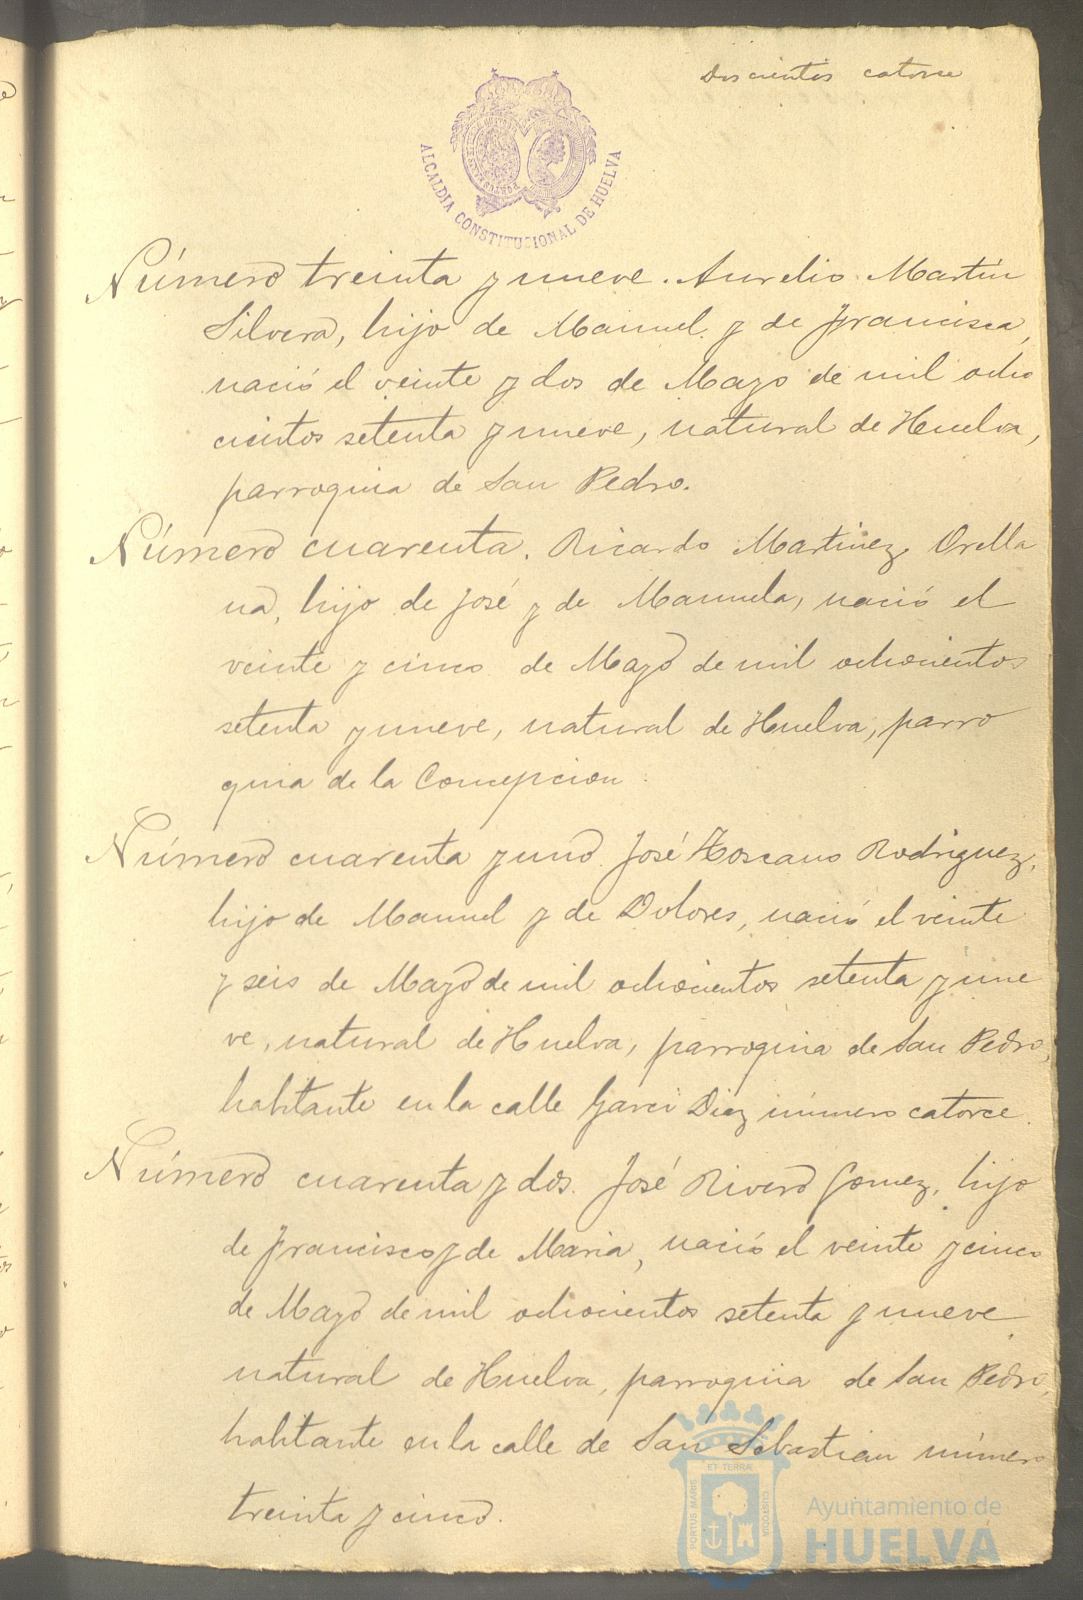 Doscientos catorce
ALCALDIA CONSTITUCIONAL DE HUELVA
Número treinta y nueve. Aurelio Martín
Silvera, hijo de Manuel y de Francisca,
nació el veinte y dos de Mayo de mil ocho
cientos setenta y nueve, natural de Huelva,
parroquia de San Pedro.
Número cuarenta. Ricardo Martinez Orella
na, hijo de José y de Manuela, nació el
veinte y cinco de Mayo de mil ochocientos
setenta y nueve, natural de Huelva, parro
quia de la Concepcion.
Número cuarenta y uno. José Toscano Rodriguez,
hijo de Manuel y de Dolores, nació el veinte
y seis de Mayo de mil ochocientos setenta y nue
ve, natural de Huelva, parroquia de San Pedro,
habitante en la calle Garci Diaz número catorce.
Número cuarenta y dos. José Rivero Gomez, hijo
de Francisco y de Maria, nació el veinte y cinco
de Mayo de mil ochocientos setenta y nueve
natural de Huelva, parroquia de San Pedro,
habitante en la calle de San Sebastian número
treinta y cinco.
PORTUS MARIS ET TERRÆ CUSTODIA
Ayuntamiento de
HUELVA